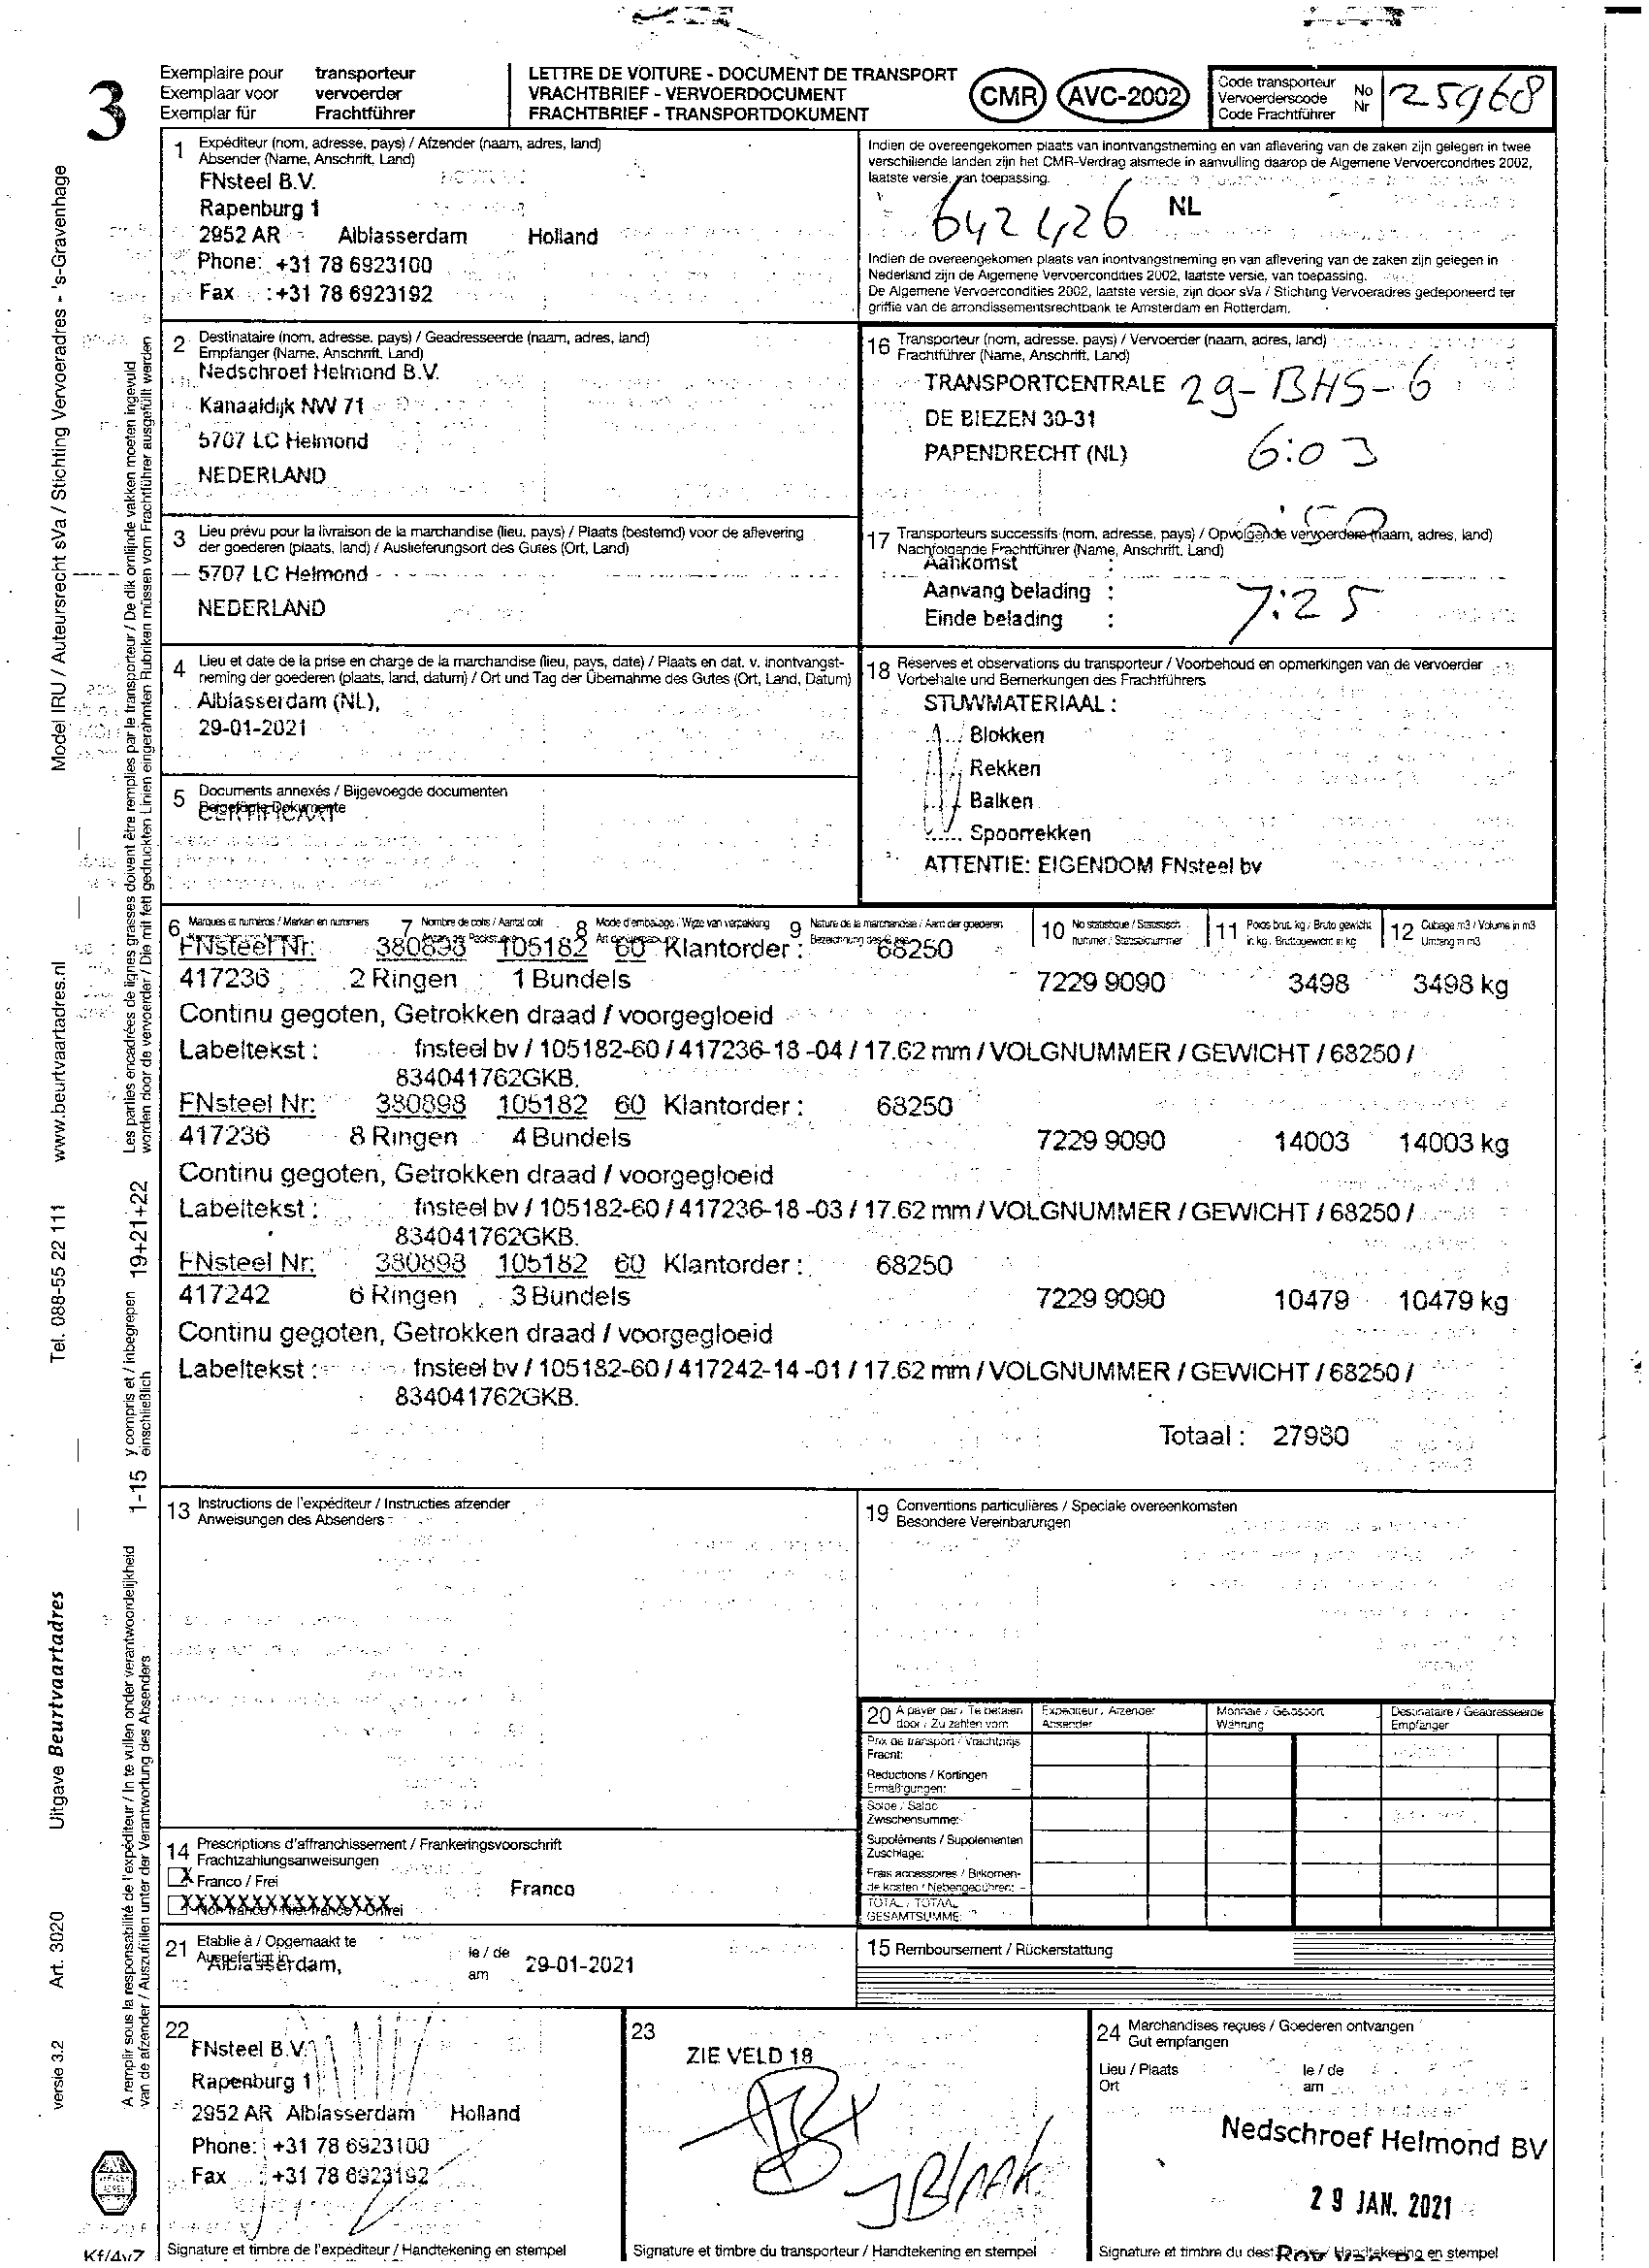 3
Exemplaire pour transporteur
Exemplaar voor vervoerder
Exemplar für Frachtführer
LETTRE DE VOITURE - DOCUMENT DE TRANSPORT
VRACHTBRIEF - VERVOERDOCUMENT
FRACHTBRIEF - TRANSPORTDOKUMENT
CMR AVC-2002
Code transporteur
Vervoerderscode
Code Frachtführer
No
Nr
25968
1 Expéditeur (nom, adresse, pays) / Afzender (naam, adres, land)
Absender (Name, Anschrift, Land)
FNsteel B.V.
Rapenburg 1
2952 AR Alblasserdam Holland
Phone: +31 78 6923100
Fax :+31 78 6923192
Indien de overeengekomen plaats van inontvangstneming en van aflevering van de zaken zijn gelegen in twee
verschillende landen zijn het CMR-Verdrag alsmede in aanvulling daarop de Algemene Vervoercondities 2002,
laatste versie, van toepassing.
642426 NL
Indien de overeengekomen plaats van inontvangstneming en van aflevering van de zaken zijn gelegen in
Nederland zijn de Algemene Vervoercondities 2002, laatste versie, van toepassing.
De Algemene Vervoercondities 2002, laatste versie, zijn door sVa / Stichting Vervoeradres gedeponeerd ter
griffie van de arrondissementsrechtbank te Amsterdam en Rotterdam.
2 Destinataire (nom, adresse, pays) / Geadresseerde (naam, adres, land)
Empfänger (Name, Anschrift, Land)
Nedschroef Helmond B.V.
Kanaaldijk NW 71
5707 LC Helmond
NEDERLAND
16 Transporteur (nom, adresse, pays) / Vervoerder (naam, adres, land)
Frachtführer (Name, Anschrift, Land)
TRANSPORTCENTRALE 29-BHS-6
DE BIEZEN 30-31
PAPENDRECHT (NL) 6:03
3 Lieu prévu pour la livraison de la marchandise (lieu, pays) / Plaats (bestemd) voor de aflevering
der goederen (plaats, land) / Auslieferungsort des Gutes (Ort, Land)
5707 LC Helmond
NEDERLAND
17 Transporteurs successifs (nom, adresse, pays) / Opvolgende vervoerders (naam, adres, land)
Nachfolgende Frachtführer (Name, Anschrift, Land)
Aankomst :
Aanvang belading :
Einde belading :
7:25
4 Lieu et date de la prise en charge de la marchandise (lieu, pays, date) / Plaats en dat. v. inontvangst-
neming der goederen (plaats, land, datum) / Ort und Tag der Übernahme des Gutes (Ort, Land, Datum)
Alblasserdam (NL),
29-01-2021
18 Réserves et observations du transporteur / Voorbehoud en opmerkingen van de vervoerder
Vorbehalte und Bemerkungen des Frachtführers
STUWMATERIAAL :
Blokken
Rekken
Balken
Spoorrekken
ATTENTIE: EIGENDOM FNsteel bv
5 Documents annexés / Bijgevoegde documenten
Beigefügte Dokumente
CERTIFICAAT
6 Marques et numéros / Merken en nummers
7 Nombre de colis / Aantal colli
8 Mode d'emballage / Wijze van verpakking
9 Nature de la marchandise / Aard der goederen
10 No statistique / Statistisch nummer / Statistiknummer
11 Poids brut, kg / Bruto gewicht in kg / Bruttogewicht in kg
12 Cubage m3 / Volume in m3
Umfang in m3
FNsteel Nr: 380898 105182 60 Klantorder : 68250
417236 2 Ringen 1 Bundels 7229 9090 3498 3498 kg
Continu gegoten, Getrokken draad / voorgegloeid
Labeltekst : fnsteel bv / 105182-60 / 417236-18 -04 / 17.62 mm / VOLGNUMMER / GEWICHT / 68250 /
834041762GKB.
FNsteel Nr: 380898 105182 60 Klantorder : 68250
417236 8 Ringen 4 Bundels 7229 9090 14003 14003 kg
Continu gegoten, Getrokken draad / voorgegloeid
Labeltekst : fnsteel bv / 105182-60 / 417236-18 -03 / 17.62 mm / VOLGNUMMER / GEWICHT / 68250 /
834041762GKB.
FNsteel Nr: 380898 105182 60 Klantorder : 68250
417242 6 Ringen 3 Bundels 7229 9090 10479 10479 kg
Continu gegoten, Getrokken draad / voorgegloeid
Labeltekst : fnsteel bv / 105182-60 / 417242-14 -01 / 17.62 mm / VOLGNUMMER / GEWICHT / 68250 /
834041762GKB.
Totaal : 27980
13 Instructions de l'expéditeur / Instructies afzender
Anweisungen des Absenders
19 Conventions particulières / Speciale overeenkomsten
Besondere Vereinbarungen
20 A payer par / Te betalen door / Zu zahlen vom
Expéditeur / Afzender
Absender
Monnaie / Geldsoort
Währung
Destinataire / Geadresseerde
Empfänger
Prix de transport / Vrachtprijs
Fracht:
Reductions / Kortingen
Ermäßigungen: –
Solde / Saldo
Zwischensumme:
Suppléments / Supplementen
Zuschlage:
Frais accessoires / Bijkomen-
de kosten / Nebengebühren:
TOTAL / TOTAAL
GESAMTSUMME:
14 Prescriptions d'affranchissement / Frankeringsvoorschrift
Frachtzahlungsanweisungen
X Franco / Frei
Franco
XXXXXXXXXXXXXXX
Non franco / Niet franco / Unfrei
21 Etablie à / Opgemaakt te
Ausgefertigt in
Alblasserdam,
le / de
am
29-01-2021
15 Remboursement / Rückerstattung
22
FNsteel B.V.
Rapenburg 1
2952 AR Alblasserdam Holland
Phone: +31 78 6923100
Fax :+31 78 6923192
Signature et timbre de l'expéditeur / Handtekening en stempel
23
ZIE VELD 18
Signature et timbre du transporteur / Handtekening en stempel
24 Marchandises reçues / Goederen ontvangen
Gut empfangen
Lieu / Plaats
Ort
le / de
am
Nedschroef Helmond BV
29 JAN. 2021
Signature et timbre du dest / Handtekening en stempel
Model IRU / Auteursrecht sVa / Stichting Vervoeradres - 's-Gravenhage
www.beurtvaartadres.nl
Tel. 088-55 22 111
Uitgave Beurtvaartadres
Art. 3020
versie 3.2
Les parties encadrées de lignes grasses doivent être remplies par le transporteur / De dik omlijnde vakken moeten ingevuld
worden door de vervoerder / Die mit fett gedruckten Linien eingerahmten Rubriken müssen vom Frachtführer ausgefüllt werden
19+21+22
1-15 y compris et / inbegrepen
einschließlich
A remplir sous la responsabilité de l'expéditeur / In te vullen onder verantwoordelijkheid
van de afzender / Auszufüllen unter der Verantwortung des Absenders